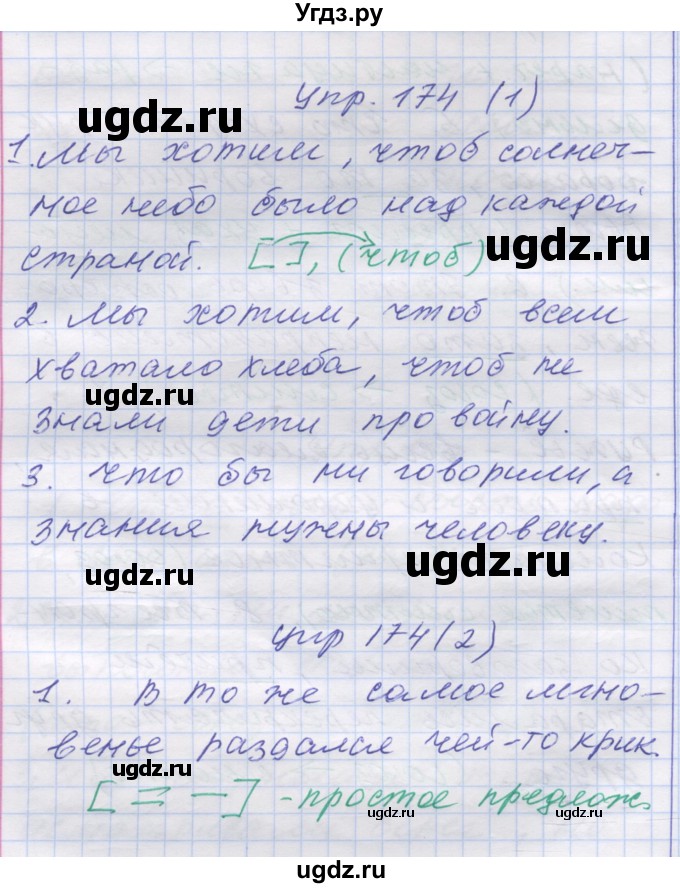 Угдз.ру
Упр. 174 (1)
1. Мы хотим, чтоб солнеч-
ное небо было над каждой
страной. [ ], (чтоб)
2. Мы хотим, чтоб всем
хватало хлеба, чтоб не
знали дети про войну.
3. Что бы ни говорили, а
знания нужны человеку.
Упр 174(2)
1. В то же самое мгно-
венье раздался чей-то крик.
[= –] - простое предлож.
ugdz.ru
ugdz.ru
ugdz.ru
ugdz.ru
ugdz.ru
ugdz.ru
ugdz.ru
ugdz.ru
ugdz.ru